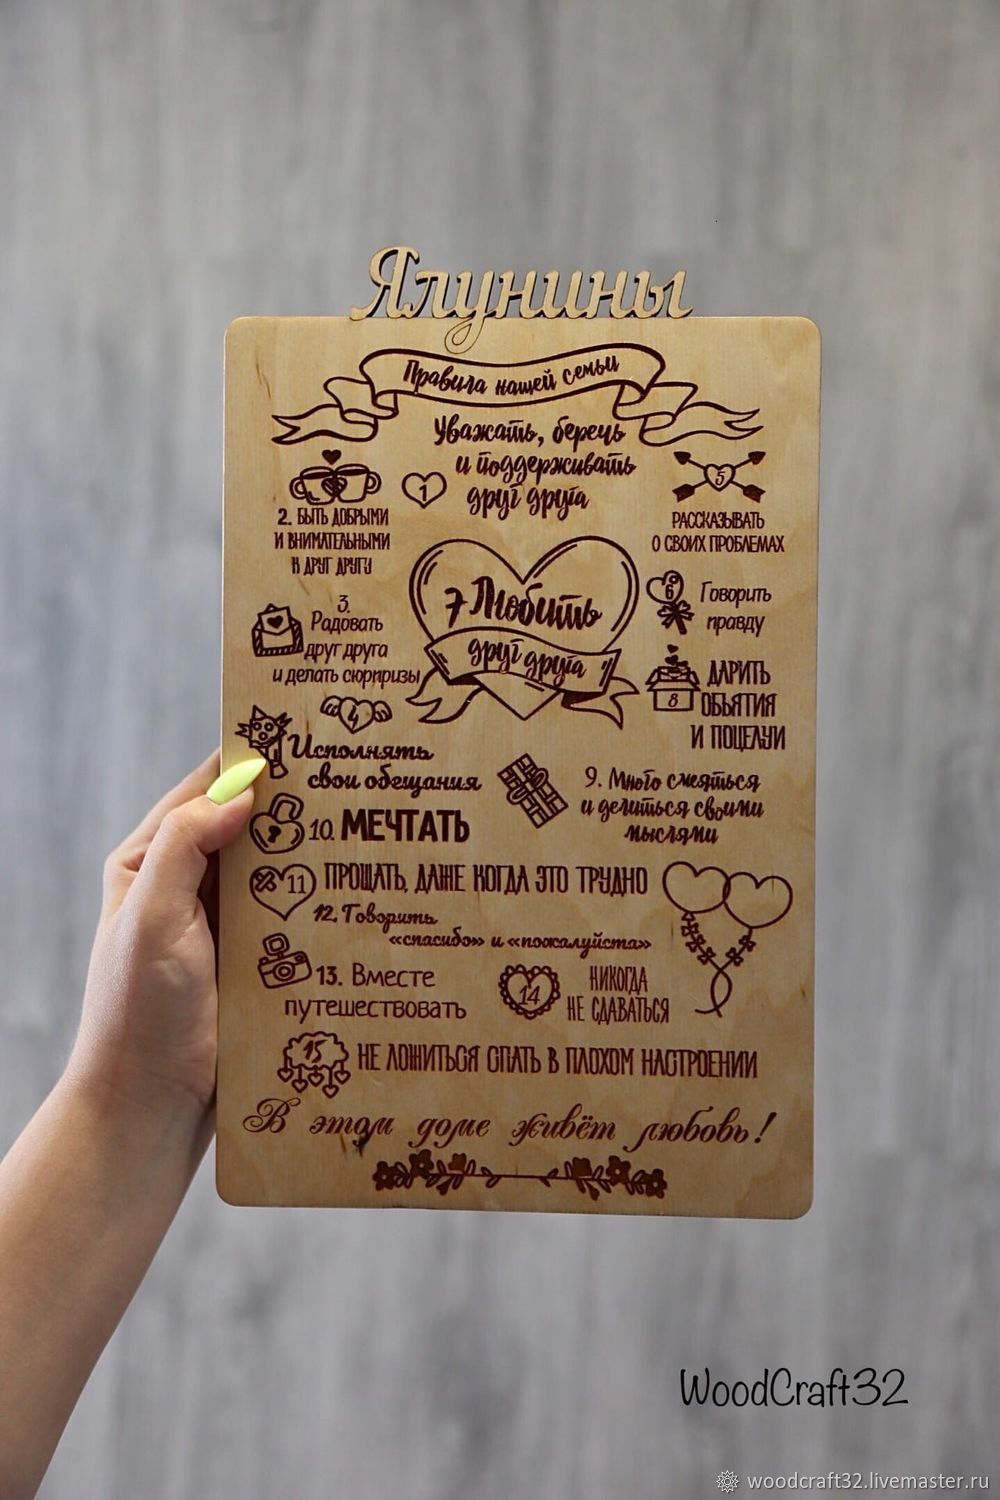 Ялунины
Правила нашей семьи
1
Уважать, беречь
и поддерживать
друг друга
2. БЫТЬ ДОБРЫМИ
И ВНИМАТЕЛЬНЫМИ
К ДРУГ ДРУГУ
3.
Радовать
друг друга
и делать сюрпризы
4
Исполнять
свои обещания
5
РАССКАЗЫВАТЬ
О СВОИХ ПРОБЛЕМАХ
6
Говорить
правду
7 Любить
друг друга
8
ДАРИТЬ
ОБЬЯТИЯ
И ПОЦЕЛУИ
9. Много смеяться
и делиться своими
мыслями
10. МЕЧТАТЬ
11 ПРОЩАТЬ, ДАЖЕ КОГДА ЭТО ТРУДНО
12. Говорить
«спасибо» и «пожалуйста»
13. Вместе
путешествовать
14
НИКОГДА
НЕ СДАВАТЬСЯ
15 НЕ ЛОЖИТЬСЯ СПАТЬ В ПЛОХОМ НАСТРОЕНИИ
В этом доме живёт любовь!
WoodCraft32
woodcraft32.livemaster.ru